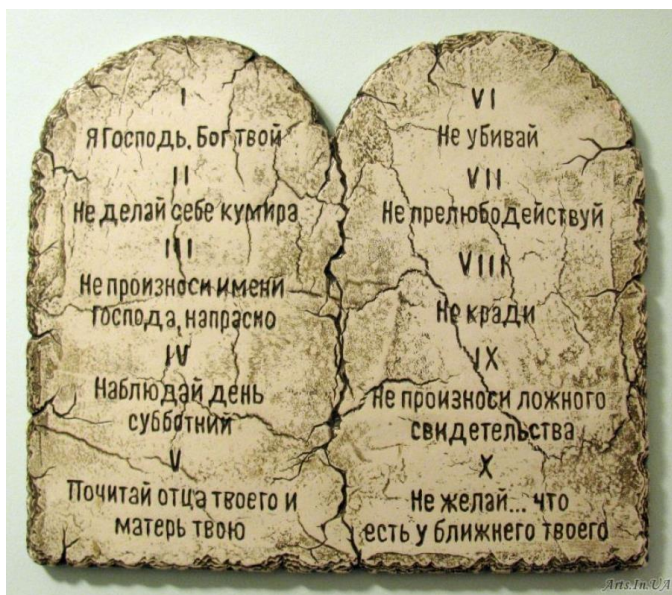 I
Я Господь, Бог твой
II
Не делай себе кумира
III
Не произноси имени
Господа, напрасно
IV
Наблюдай день
субботний
V
Почитай отца твоего и
матерь твою
VI
Не убивай
VII
Не прелюбодействуй
VIII
Не кради
IX
Не произноси ложного
свидетельства
X
Не желай... что
есть у ближнего твоего
Arts.In.UA